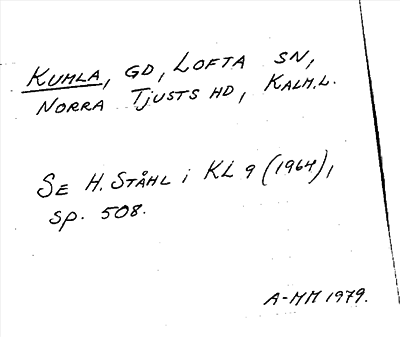 KUMLA, GD, LOFTA SN,
NORRA TJUSTS HD, KALM.L.
SE H. STÅHL i KL 9 (1964),
SP. 508.
A-MM 1979.